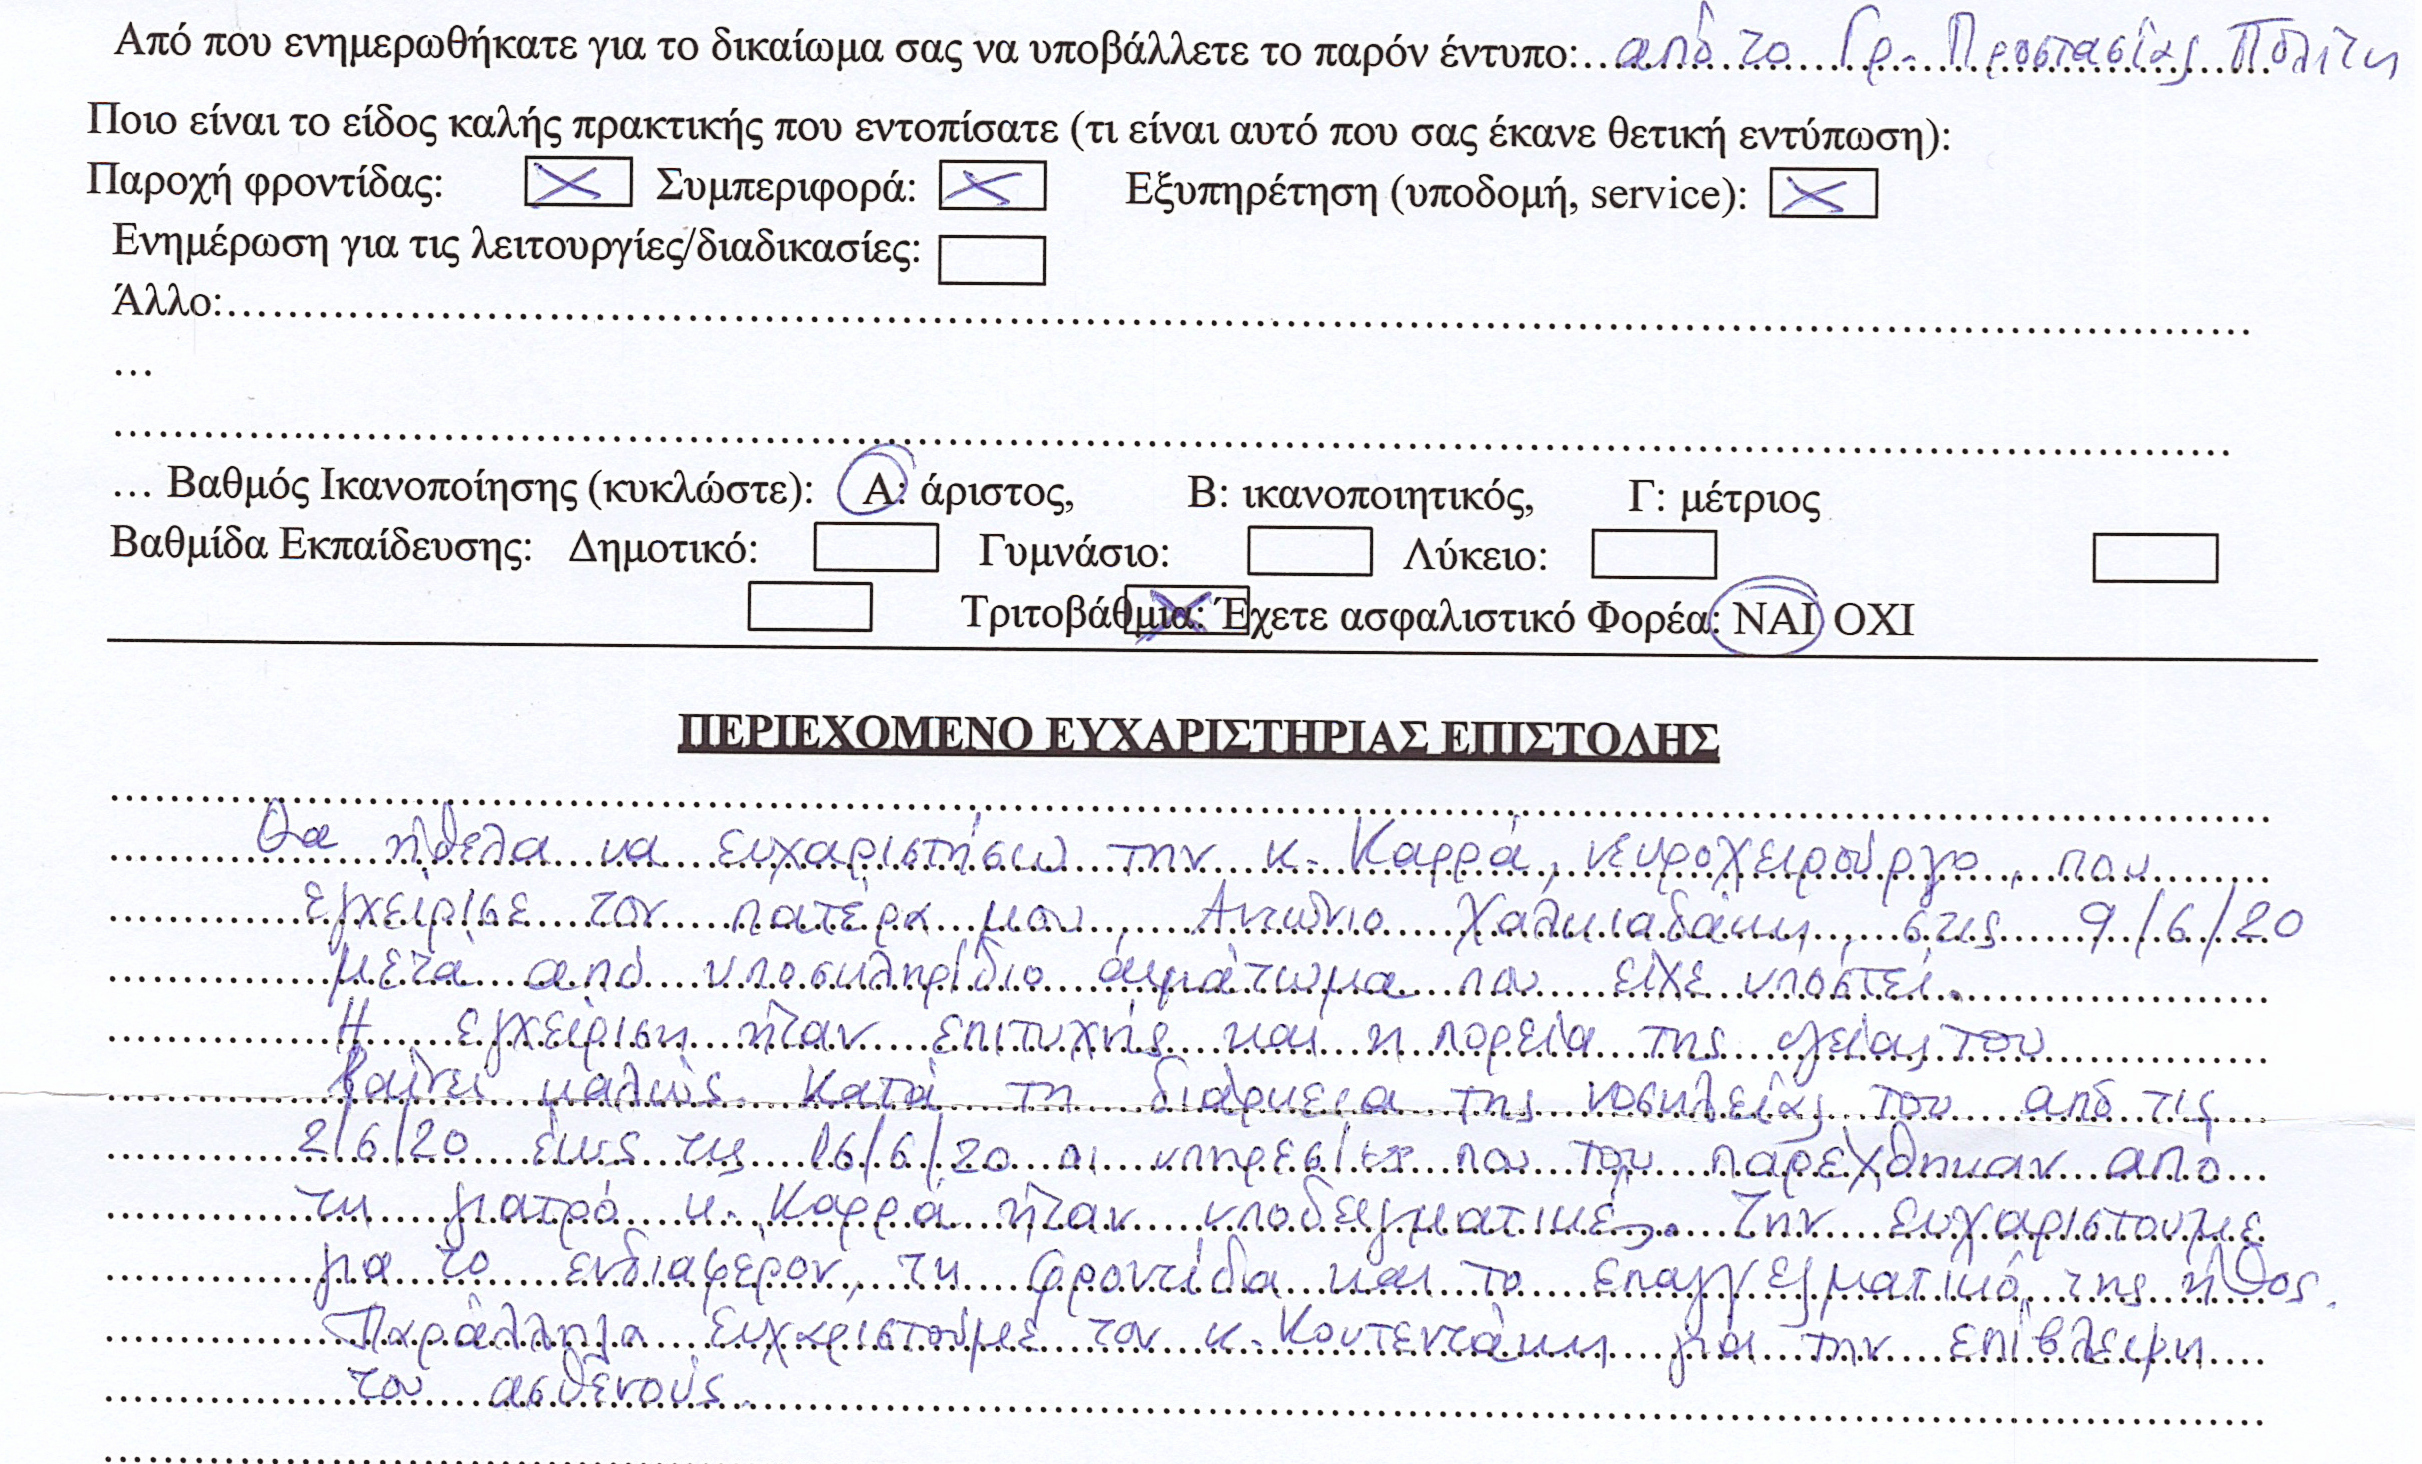 Από που ενημερωθήκατε για το δικαίωμα σας να υποβάλλετε το παρόν έντυπο:...από το Γρ. Προστασίας Πολίτη
Ποιο είναι το είδος καλής πρακτικής που εντοπίσατε (τι είναι αυτό που σας έκανε θετική εντύπωση):
Παροχή φροντίδας: X Συμπεριφορά: X Εξυπηρέτηση (υποδομή, service): X
Ενημέρωση για τις λειτουργίες/διαδικασίες:
Άλλο:....................
…
....................
… Βαθμός Ικανοποίησης (κυκλώστε): Α: άριστος, Β: ικανοποιητικός, Γ: μέτριος
Βαθμίδα Εκπαίδευσης: Δημοτικό: Γυμνάσιο: Λύκειο:
Τριτοβάθμια: X Έχετε ασφαλιστικό Φορέα: ΝΑΙ ΟΧΙ
ΠΕΡΙΕΧΟΜΕΝΟ ΕΥΧΑΡΙΣΤΗΡΙΑΣ ΕΠΙΣΤΟΛΗΣ
Θα ήθελα να ευχαριστήσω την κ. Καρρά, νευροχειρούργο, που
εγχείρισε τον πατέρα μου, Αντώνιο Χαλκιαδάκη, στις 9/6/20
μετά από υποσκληρίδιο αιμάτωμα που είχε υποστεί.
Η εγχείριση ήταν επιτυχής και η πορεία της υγείας του
βαίνει καλώς. Κατά τη διάρκεια της νοσηλείας του από τις
2/6/20 έως τις 16/6/20 οι υπηρεσίες που του παρέχθηκαν από
τη γιατρό κ. Καρρά ήταν υποδειγματικές. Την ευχαριστούμε
για το ενδιαφέρον, τη φροντίδα και το επαγγελματικό της ήθος.
Παράλληλα ευχαριστούμε τον κ. Κουτεντάκη για την επίβλεψη
του ασθενούς.